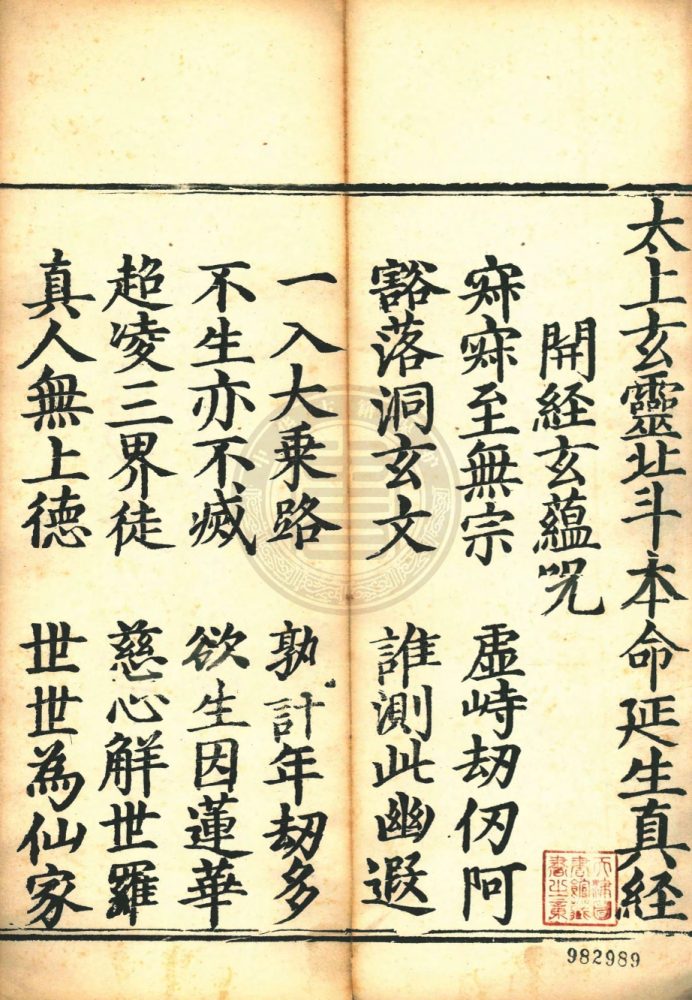 太上玄靈北斗本命延生真経
開経玄蘊咒
寂寂至無宗 虛峙劫仞阿
豁落洞玄文 誰測此幽遐
一入大乗路 孰計年劫多
不生亦不滅 欲生因蓮華
超凌三界徒 慈心解世羅
真人無上德 世世為仙家
天津圖書館藏書之章
982989